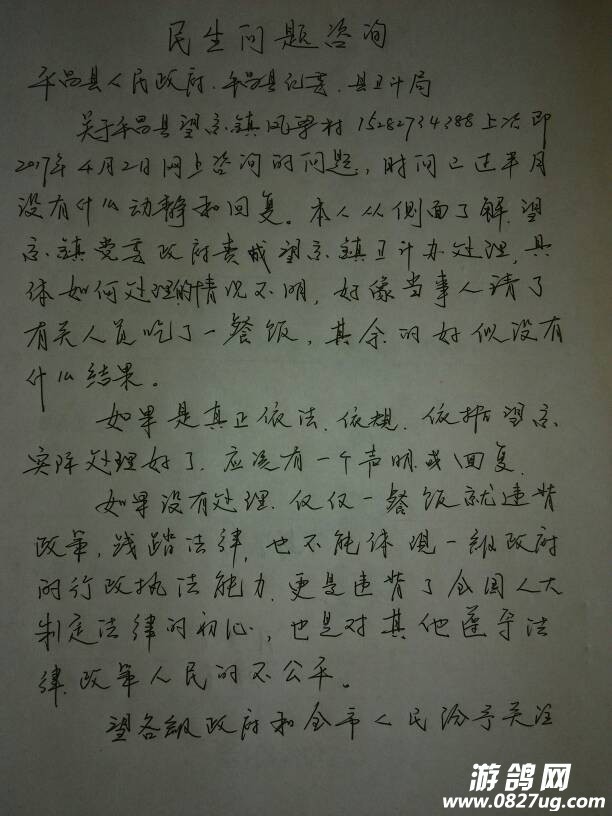 民生问题咨询
平昌县人民政府、平昌县纪委、县卫计局
关于平昌县望京镇凤梁村15282734388上次即
2017年4月2日网上咨询的问题，时间已过半月
没有什么动静和回复。本人从侧面了解，望
京镇党委政府责成望京镇卫计办处理，具
体如何处理的情况不明，好像当事人请了
有关人员吃了一餐饭，其余的好似没有
什么结果。
如果是真正依法、依规、依据望京
实际处理好了，应该有一个声明或回复
如果没有处理，仅仅一餐饭就违背
政策，践踏法律，也不能体现一级政府
的行政执法能力，更是违背了全国人大
制定法律的初心，也是对其他遵守法
律、政策人民的不公平。
望各级政府和全市人民给予关注
游鸽网
www.0827ug.com